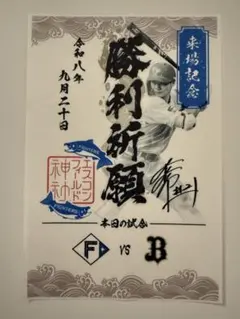 来場記念
勝利祈願
令和八年
九月二十日
エスコン
フィールド
神社
FIGHTERS
FIGHTERS
本日の試合
F vs B